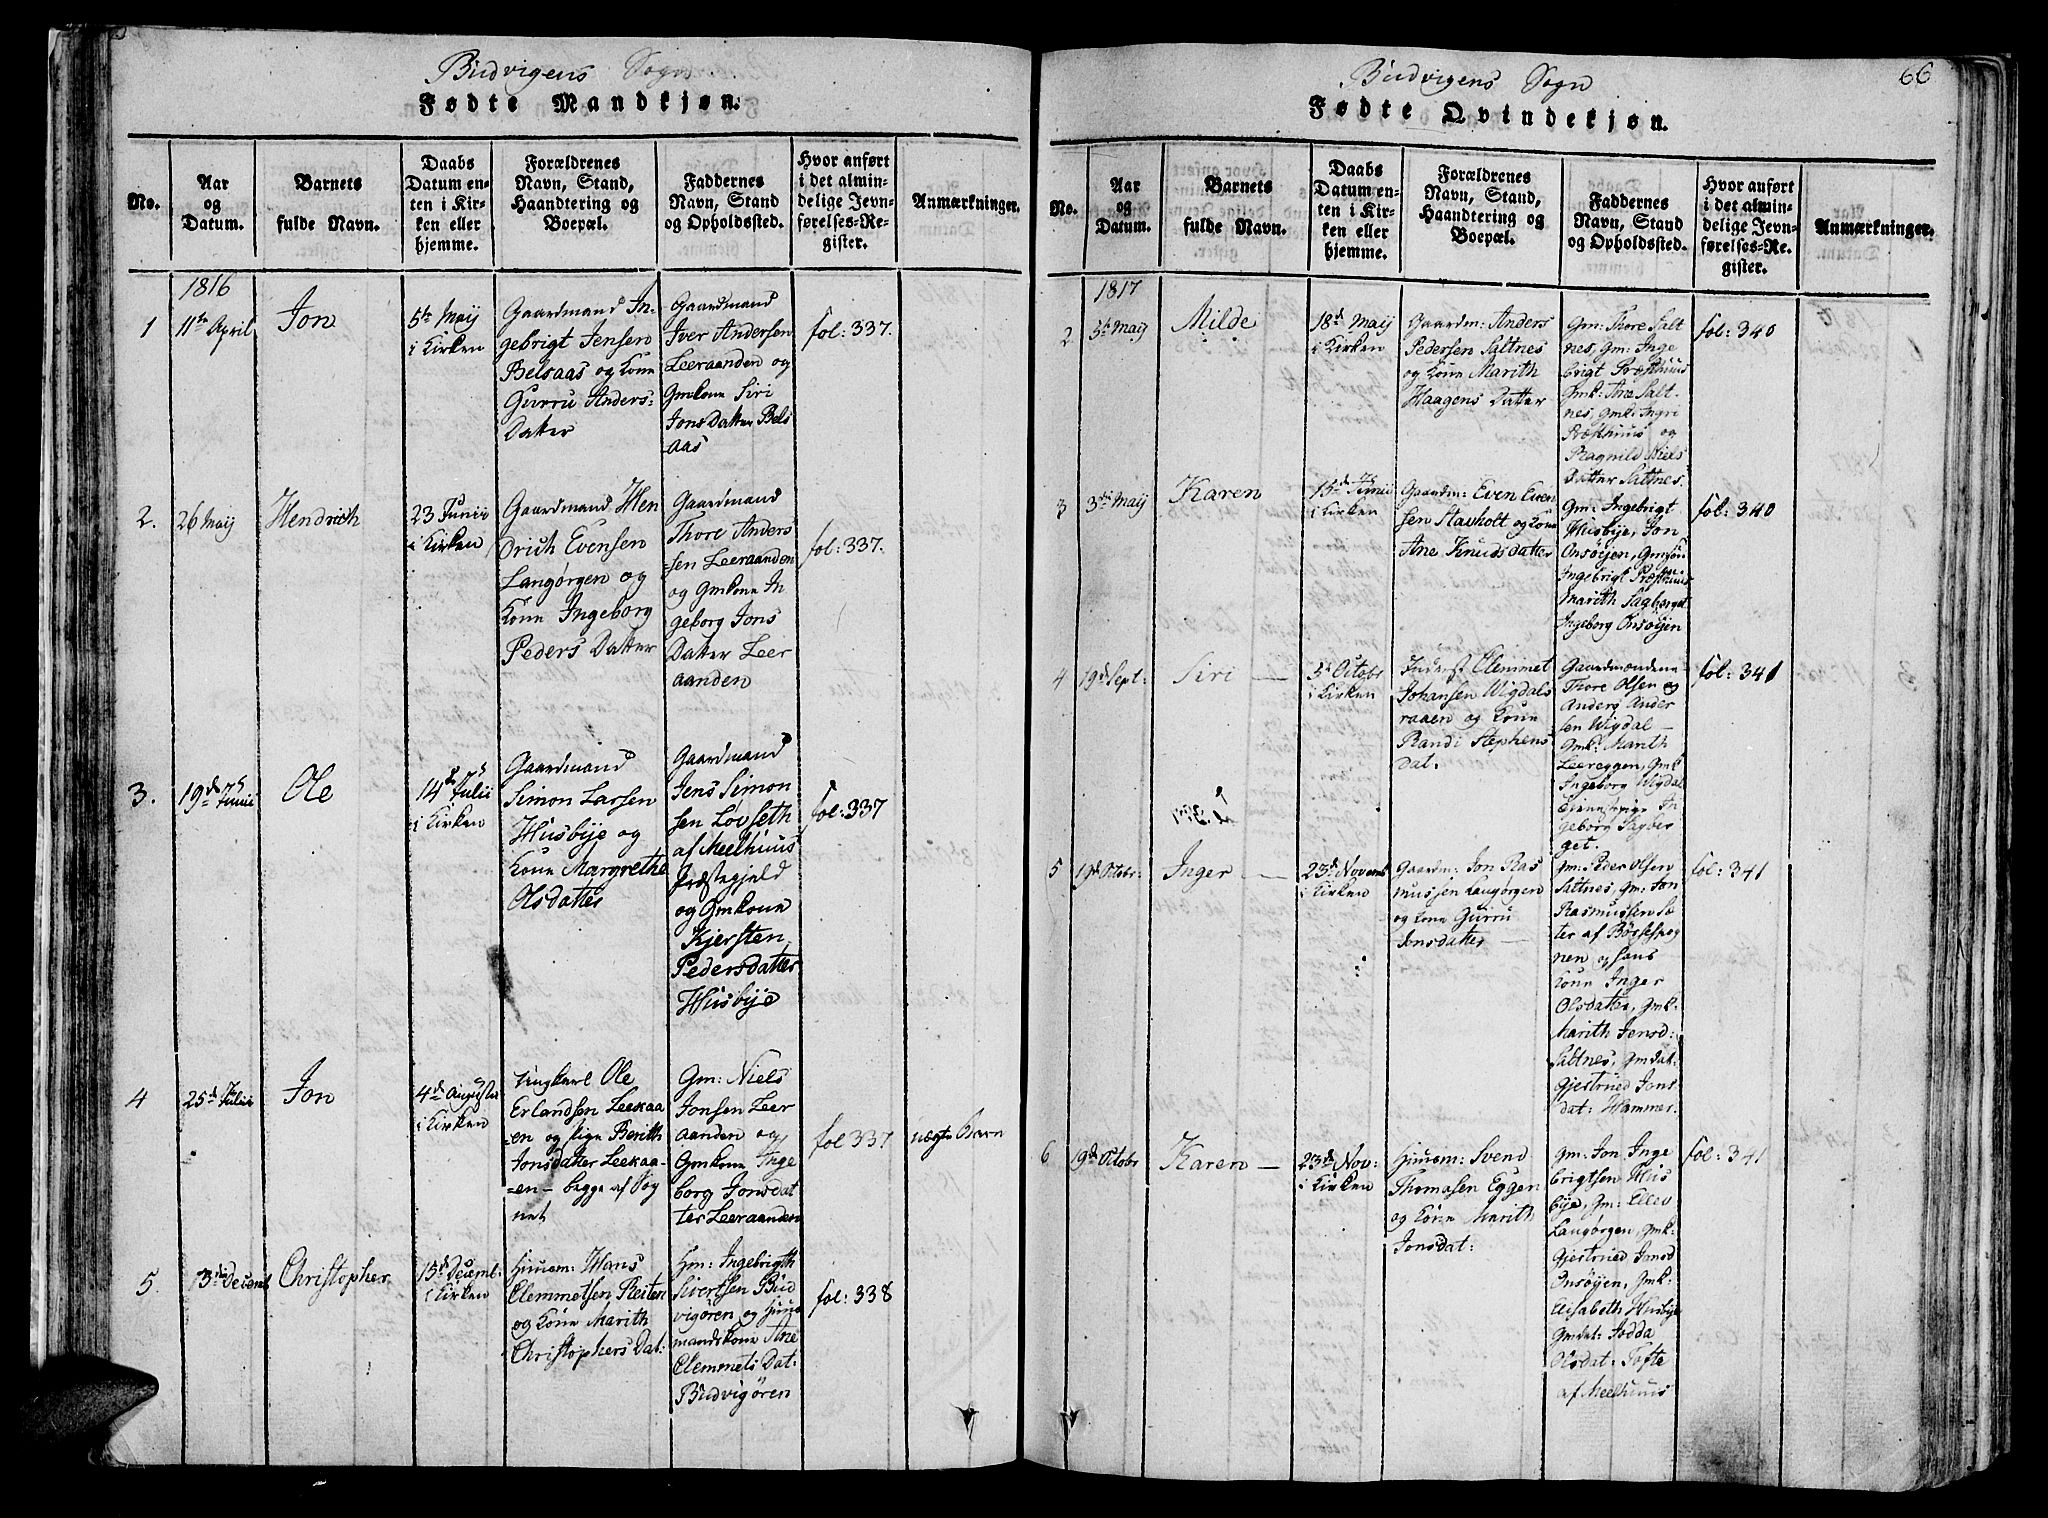 Budvigens Sogn
Fødte Mandkjøn.
No.
Aar
og
Datum.
Barnets
fulde Navn.
Daabs
Datum en-
ten i Kir-
ken eller
hjemme.
Forældrenes
Navn, Stand,
Haandtering og
Boepæl.
Faddernes
Navn, Stand
og Opholdssted.
Hvor anført
i det almin-
delige Jevn-
førelses-Re-
gister.
Anmærkninger.
1816
1
11te April
Jon
5te Maij
i Kirken
Gaardmand In-
gebrigt Jensen
Belsaas og Kone
Gurru Anders-
Datter
Gaardmand
Iver Andersen
Leeraanden og
Gmkone Siri
Jons Datter Bels
aas
fol: 337.
2.
26 Maij
Hendrich
23 Junii
i Kirken
Gaardmand Hen
drich Evensen
Langørgen og
Kone Ingeborg
Peders Datter
Gaardmand
Thore Anders
-sen Leeraanden
og Gmkone In
geborg Jons
Datter Leer
aanden
fol: 337.
3.
19de Junii
Ole
14de Julii
i Kirken
Gaardmand
Simon Larsen
Husbye og
Kone Margrethe
Olsdatter
Gaardmand
Jens Simon
sen Løvseth
af Meelhuus
Præstegield
og Gmkone
Kjersten
Pedersdatter
Husbye
fol: 337
4
25de Julii
Jon
4de Augusti
i Kirken
Ungkarl Ole
Erlandsen Leekaa
-en og Pige Berith
Jonsdatter Leekaa-
-en- begge af Sog
net
Gm: Niels
Jonsen Leer
aanden og
Gmkone Inge
borg Jonsdat
ter Leeraanden
fol 337
uægte Barn
5.
13de Decemb
Christopher
15de Decemb:
i Kirken
Huusm: Hans
Clemmetsen Reiten
og Kone Marith
Christophers Dat:
Hm: Ingebrigth
Sivertsen Bud
vigøren og Huus
mandskone Ane
Clemmets Dat:
Budvigøren
fol: 338
66
Budvigens Sogn
Fødte Qvindekjøn.
No.
Aar
og
Datum.
Barnets
fulde Navn.
Daabs
Datum en-
ten i Kir-
ken eller
hjemme.
Forældrenes
Navn, Stand,
Haandtering og
Boepæl.
Faddernes
Navn, Stand
og Opholdssted.
Hvor anført
i det almin-
delige Jevn-
førelses-Re-
gister.
Anmærkninger.
1817
2
5te Maij
Milde
18de Maij
i Kirken
Gaardm: Anders
Pedersen Saltnes
og Kone Marith
Haagens Datter
Gm: Thore Salt
nes, Gm: Inge
brigt Præsthuus
Gmk: Ane Salt
nes, Gmk: Ingri
Præsthuus og
Ragnild Niels
Datter Saltnes.
fol: 340
3
3die Maij
Karen
15de Junii
i Kirken
Gaardm: Even Even
sen Stavholt og Kone
Ane Knudsdatter
Gm: Ingebrigt
Husbye, Jon
Onsøijen, Gmsøn
Ingebrigt Præsthuus
Marith Sagberget
Ingeborg Onsøijen
fol: 340
4
19de Sept:
Siri
5te Octobr
i Kirken
Inderst Clemmet
Johansen Wigdals
raaen og Kone
Randi Stephens
dat.
Gaardmændene
Thore Olsen og
Anders Ander
sen Wigdal
Gmk: Marith
Leereggen, Gmk
Ingeborg Wigdal
Tienestepige In
geborg Sagber
get.
fol: 341
5
19de Octobr:
Inger
23de Novemb
i Kirken
Gaardm: Jon Ras
mussen Langørgen
og Kone Gurru
Jonsdatter
Gm: Peder Olsen
Saltnes, Gm: Jon
Rasmussen Sæ
ter af Børsesog
nen og hans
Kone Inger
Olsdatter, Gmk:
Marith Jensd:
Saltnes, Gmdat:
Gjestrued Jons
dat: Hammer.
fol: 341
6
19de Octobr
Karen
23de Nov:
i Kirken
Huusm: Svend
Thomasen Eggen
og Kone Marith
Jonsdat:
Gm: Jon Inge
brigtsen Hus
bye, Gm: Ellev
Langørgen, Gmk:
Gjestrued Jonsd
Onsøijen, Gmk:
Elisabeth Husbye
Gmdat: Jodda
Olsdat: Tofte
af Meelhuus
fol: 341